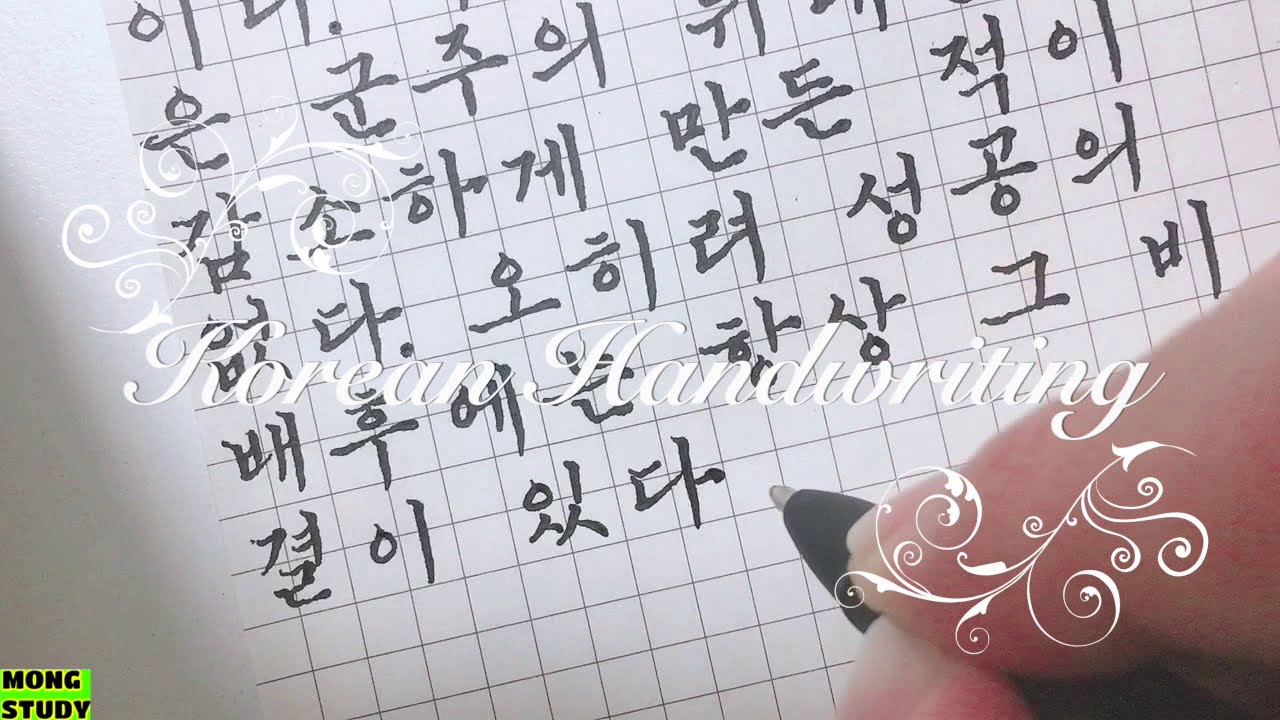 이다.
은 군주의
감소하게 만든 적이
없다. 오히려 성공의
Korean Handwriting
배후에는 항상 그 비
결이 있다
MONG
STUDY